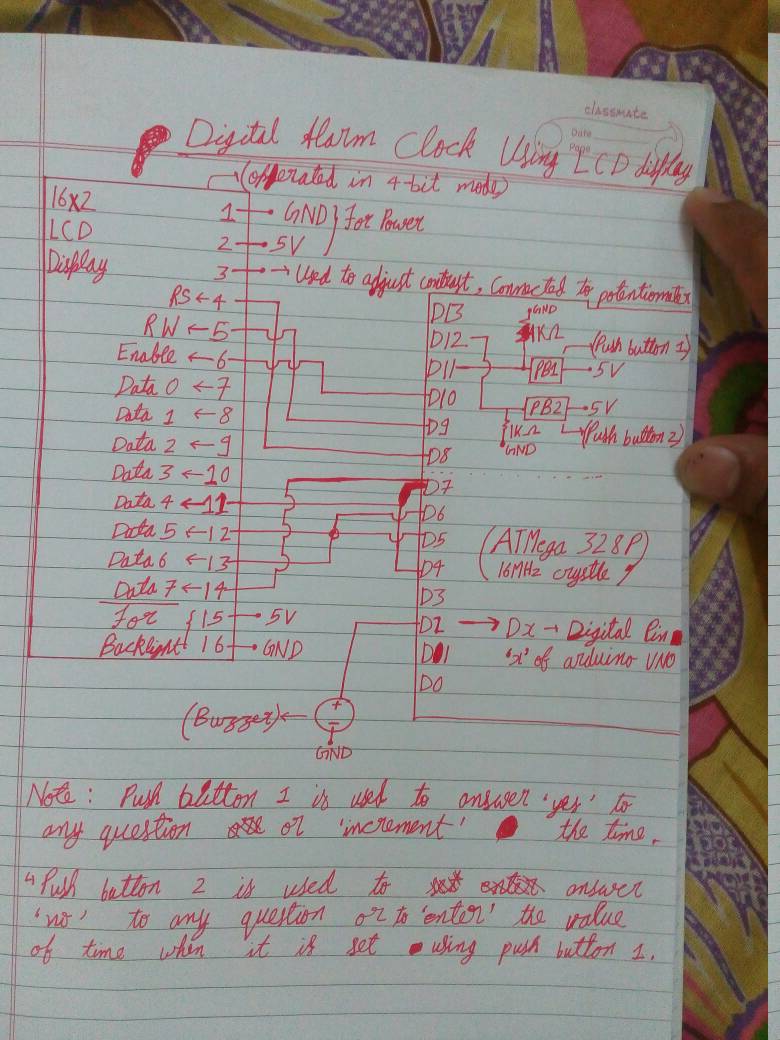 classmate
Date
Page
Digital Alarm Clock Using LCD display
(operated in 4-bit mode)
16x2
LCD
Display
1 GND } For Power
2 5V
3 → Used to adjust contrast, Connected to potentiometer
RS ← 4
RW ← 5
Enable ← 6
Data 0 ← 7
Data 1 ← 8
Data 2 ← 9
Data 3 ← 10
Data 4 ← 11
Data 5 ← 12
Data 6 ← 13
Data 7 ← 14
For { 15 5V
Backlight 16 GND
D13
D12
D11
D10
D9
D8
D7
D6
D5
D4
D3
D2 → Dx → Digital Pin
D1 'x' of arduino UNO
D0
GND
1KΩ
(Push button 1)
PB1 5V
PB2 5V
1KΩ
(Push button 2)
GND
(ATMega 328P)
16MHz crystle
(Buzzer) ← + -
GND
Note : Push button 1 is used to answer 'yes' to
any question or 'increment' the time.
Push button 2 is used to answer
'no' to any question or to 'enter' the value
of time when it is set using push button 1.